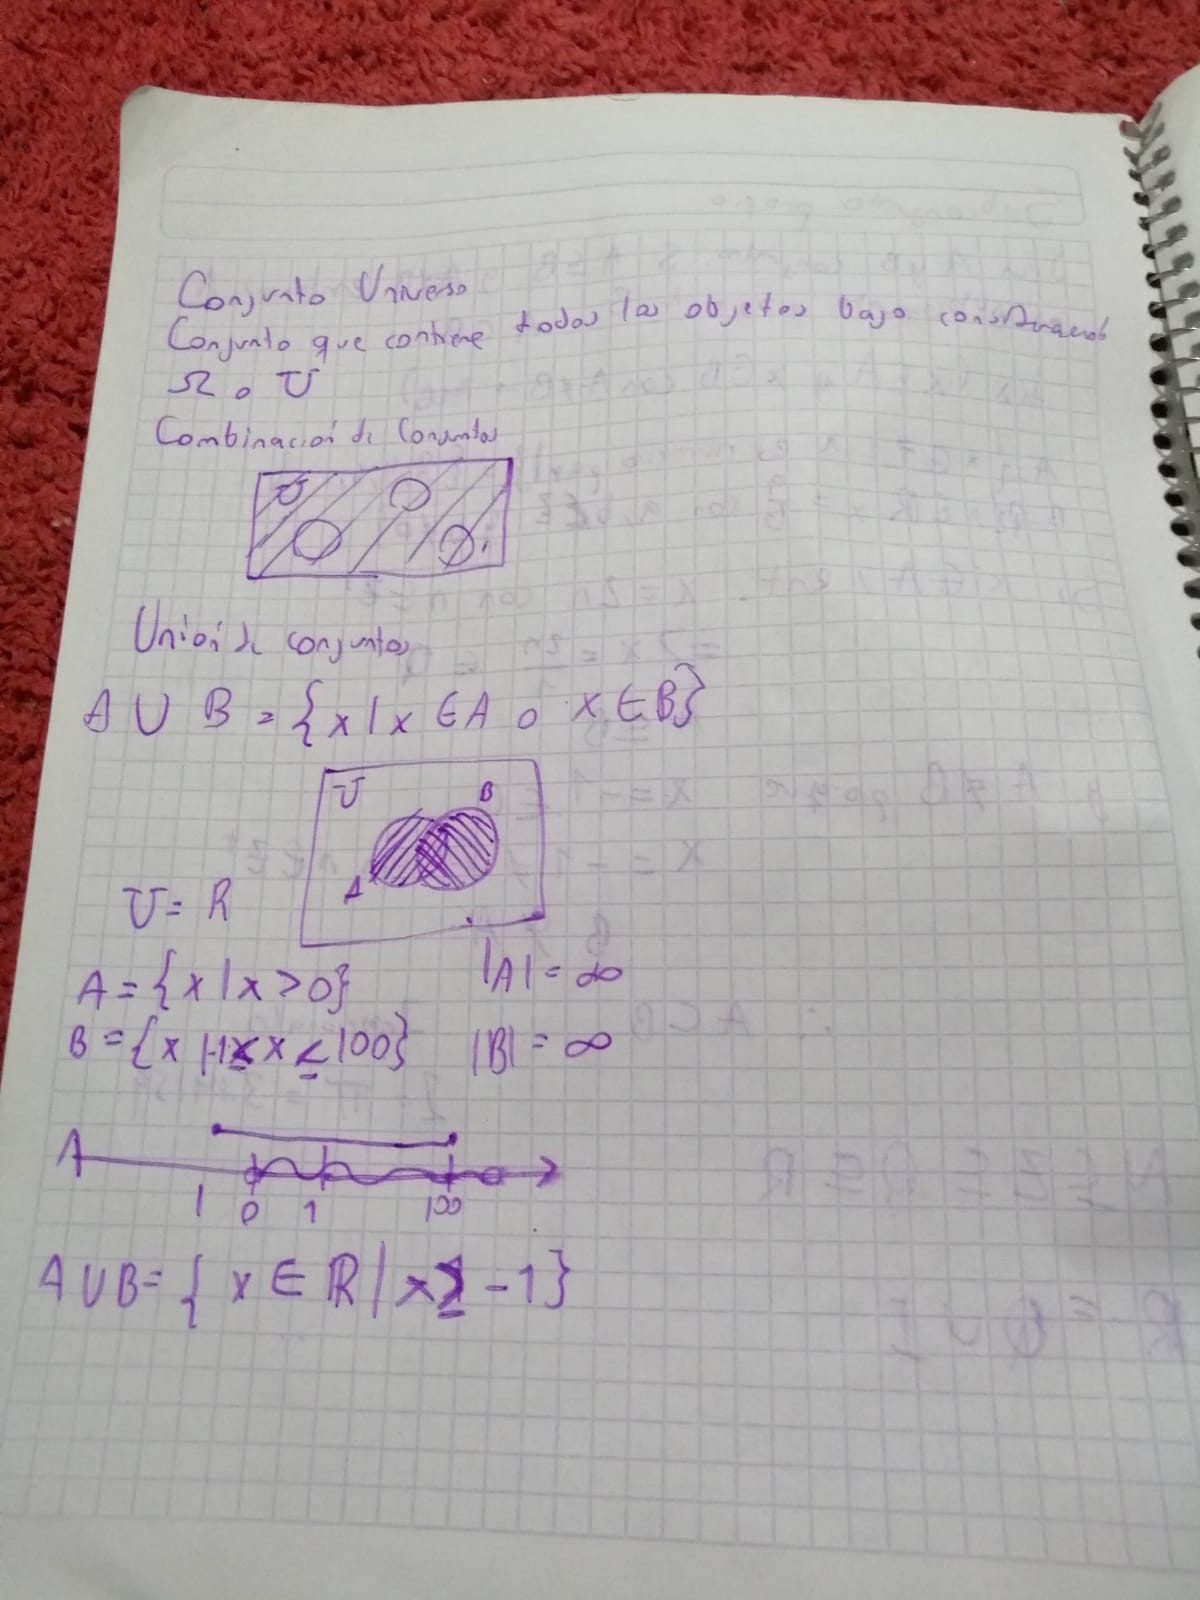 Conjunto Universo
Conjunto que contiene todos los objetos bajo consideración
Ω o U
Combinación de Conjuntos
U
Unión de conjuntos
A ∪ B = {x | x ∈ A o x ∈ B}
U
B
A
U = R
A = {x | x > 0} |A| = ∞
B = {x | -1 ≤ x ≤ 100} |B| = ∞
A
1 0 1 100
A ∪ B = { x ∈ ℝ | x ≥ -1}